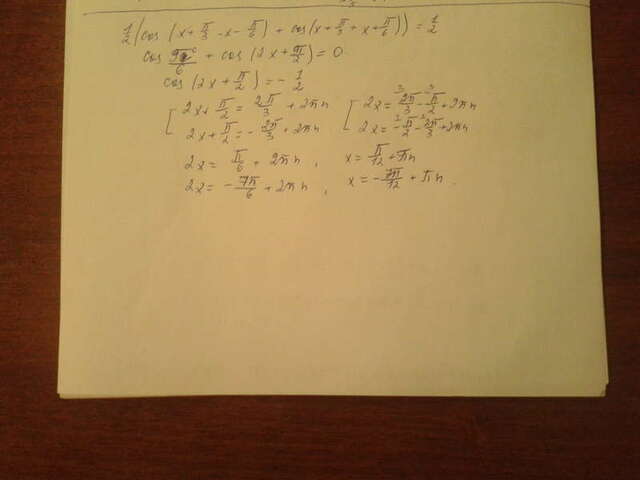 1/2 (cos (x + π/3 - x - π/6) + cos (x + π/3 + x + π/6)) = 1/2
+ cos (2x + π/2) = 0
cos (2x + π/2) = - 1/2
[ 2x + π/2 = 2π/3 + 2πn [ 2x = 2π/3 - π/2 + 2πn
2x + π/2 = - 2π/3 + 2πn 2x = - π/2 - 2π/3 + 2πn
2x = π/6 + 2πn, x = π/12 + πn
2x = - 7π/6 + 2πn, x = - 7π/12 + πn.